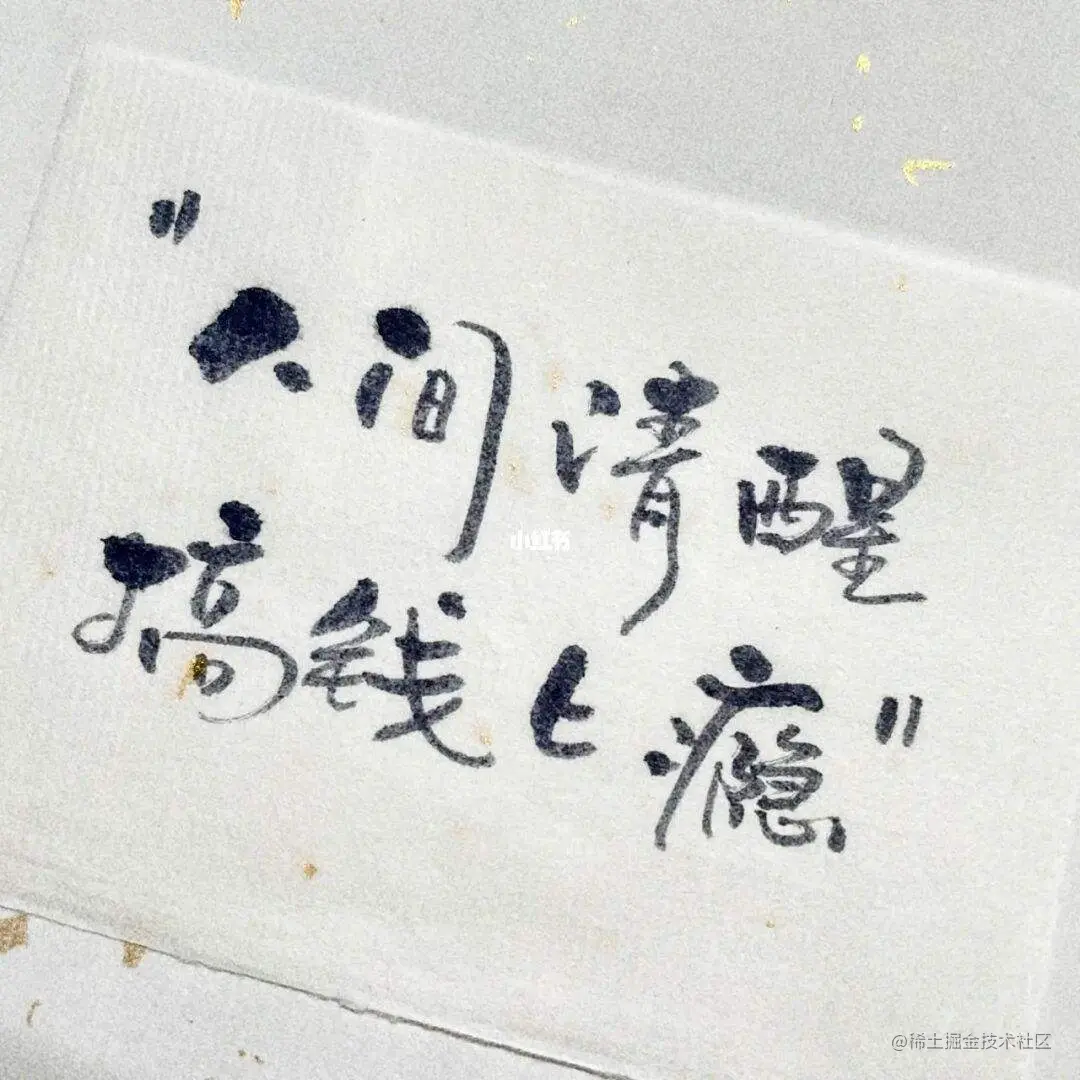 "人间清醒
搞钱上瘾"
小红书
@稀土掘金技术社区